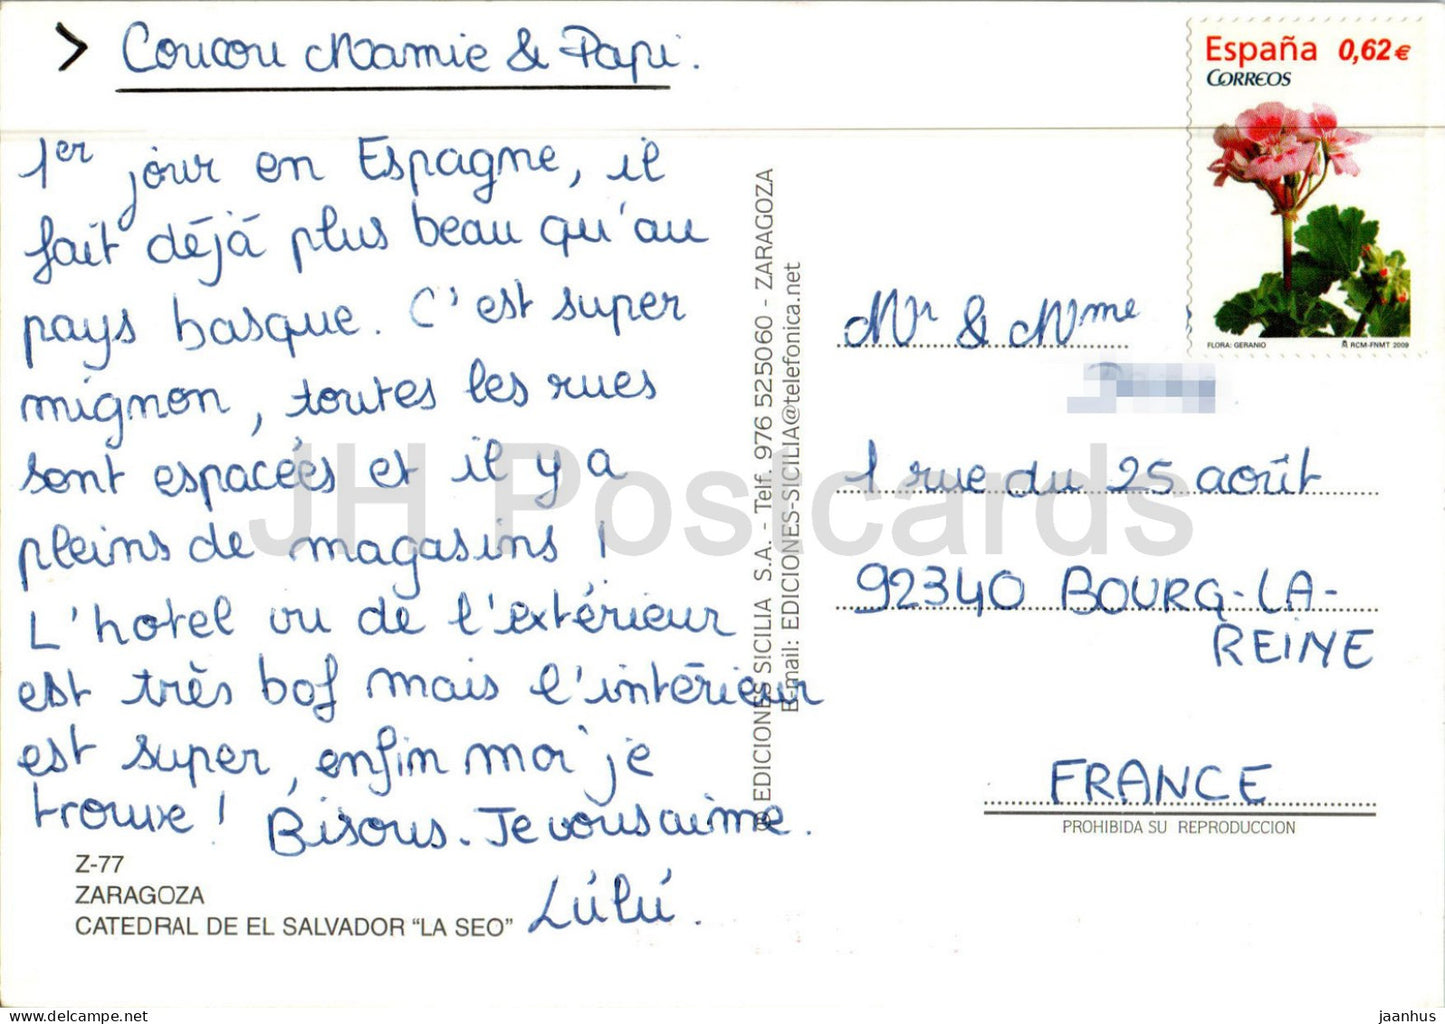 > Coucou Mamie & Papi.
1er jour en Espagne, il
fait déjà plus beau qu'au
pays basque. C'est super
mignon, toutes les rues
sont espacées et il y a
pleins de magasins !
L'hotel vu de l'extérieur
est très bof mais l'intérieur
est super, enfin moi je
trouve ! Bisous. Je vous aime.
Lúlú.
Z-77
ZARAGOZA
CATEDRAL DE EL SALVADOR "LA SEO"
® EDICIONES SICILIA S.A. - Telf. 976 525060 - ZARAGOZA
E-mail: EDICIONES-SICILIA@telefonica.net
España 0,62€
CORREOS
FLORA: GERANIO RCM-FNMT 2009
Mr & Mme
1 rue du 25 août
92340 BOURG-LA-
REINE
FRANCE
PROHIBIDA SU REPRODUCCION
JH Postcards
jaanhus